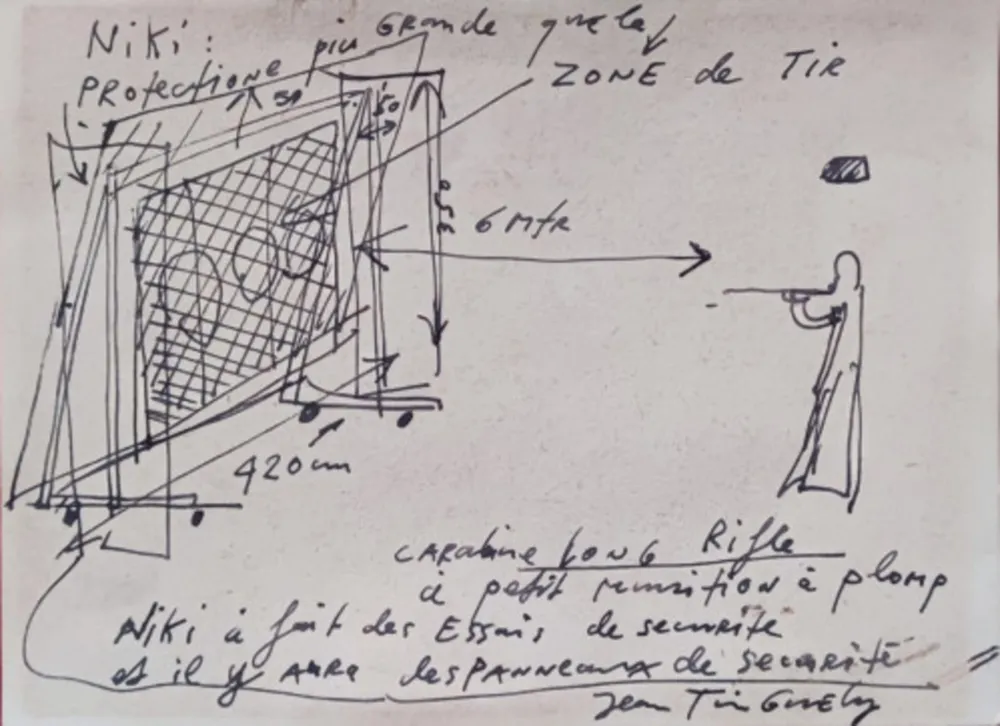 Niki :
PROTECTIONE piu GRANDE que la
ZONE de TIR
50
50
350
6 MTR
420cm
CARABINE LONG Rifle
à petit munition à plomp
Niki à fait des Essais de securité
et il y AURA des PANNEAUX de securité
Jean Tinguely